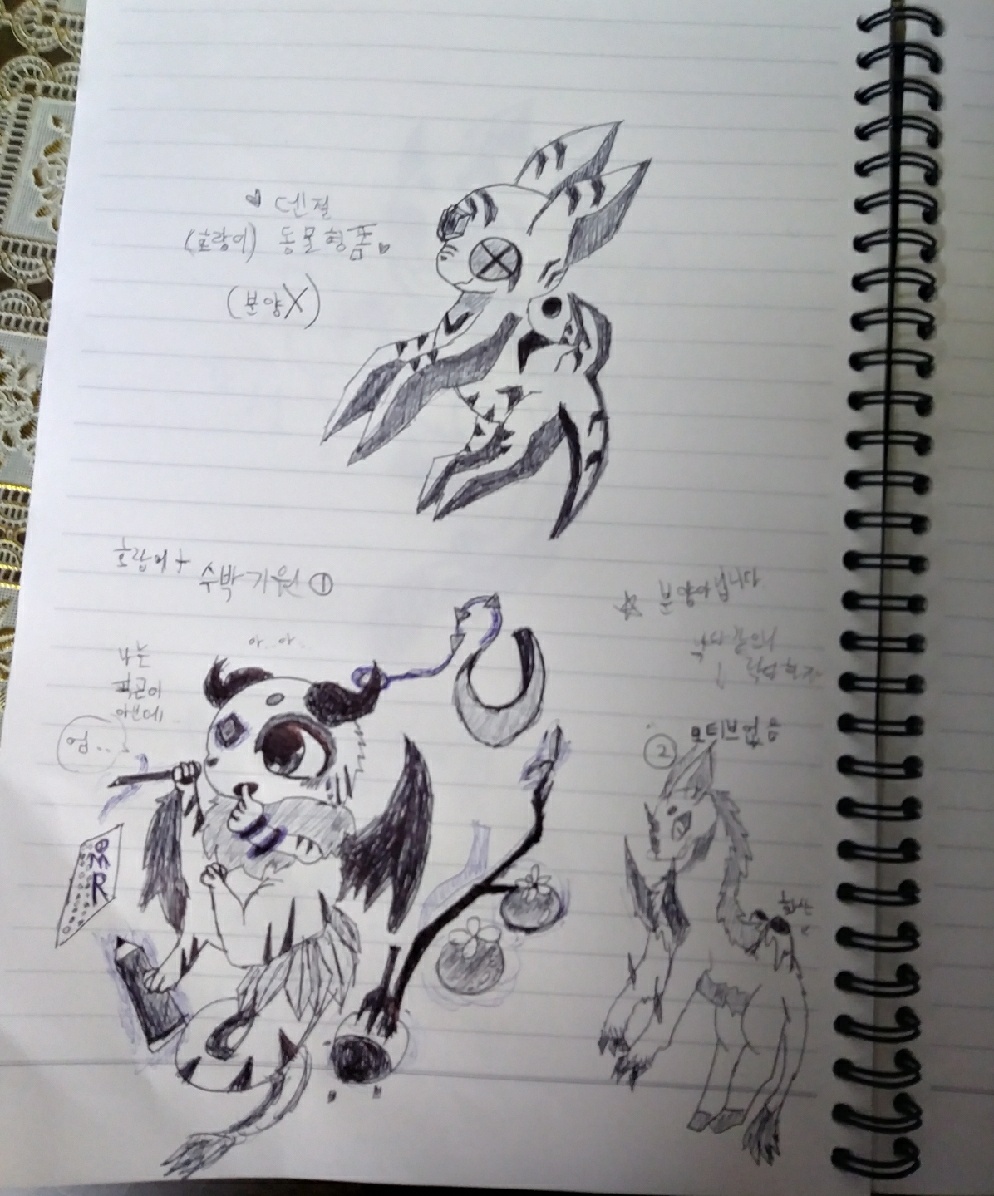 덴젤
(호랑이) 동물형폼
(분양X)
호랑이+
수박기원 ①
☆ 분양아닙니다
아..아..
나는
아닌데
엄...
② 모티브없음
OMR
화산